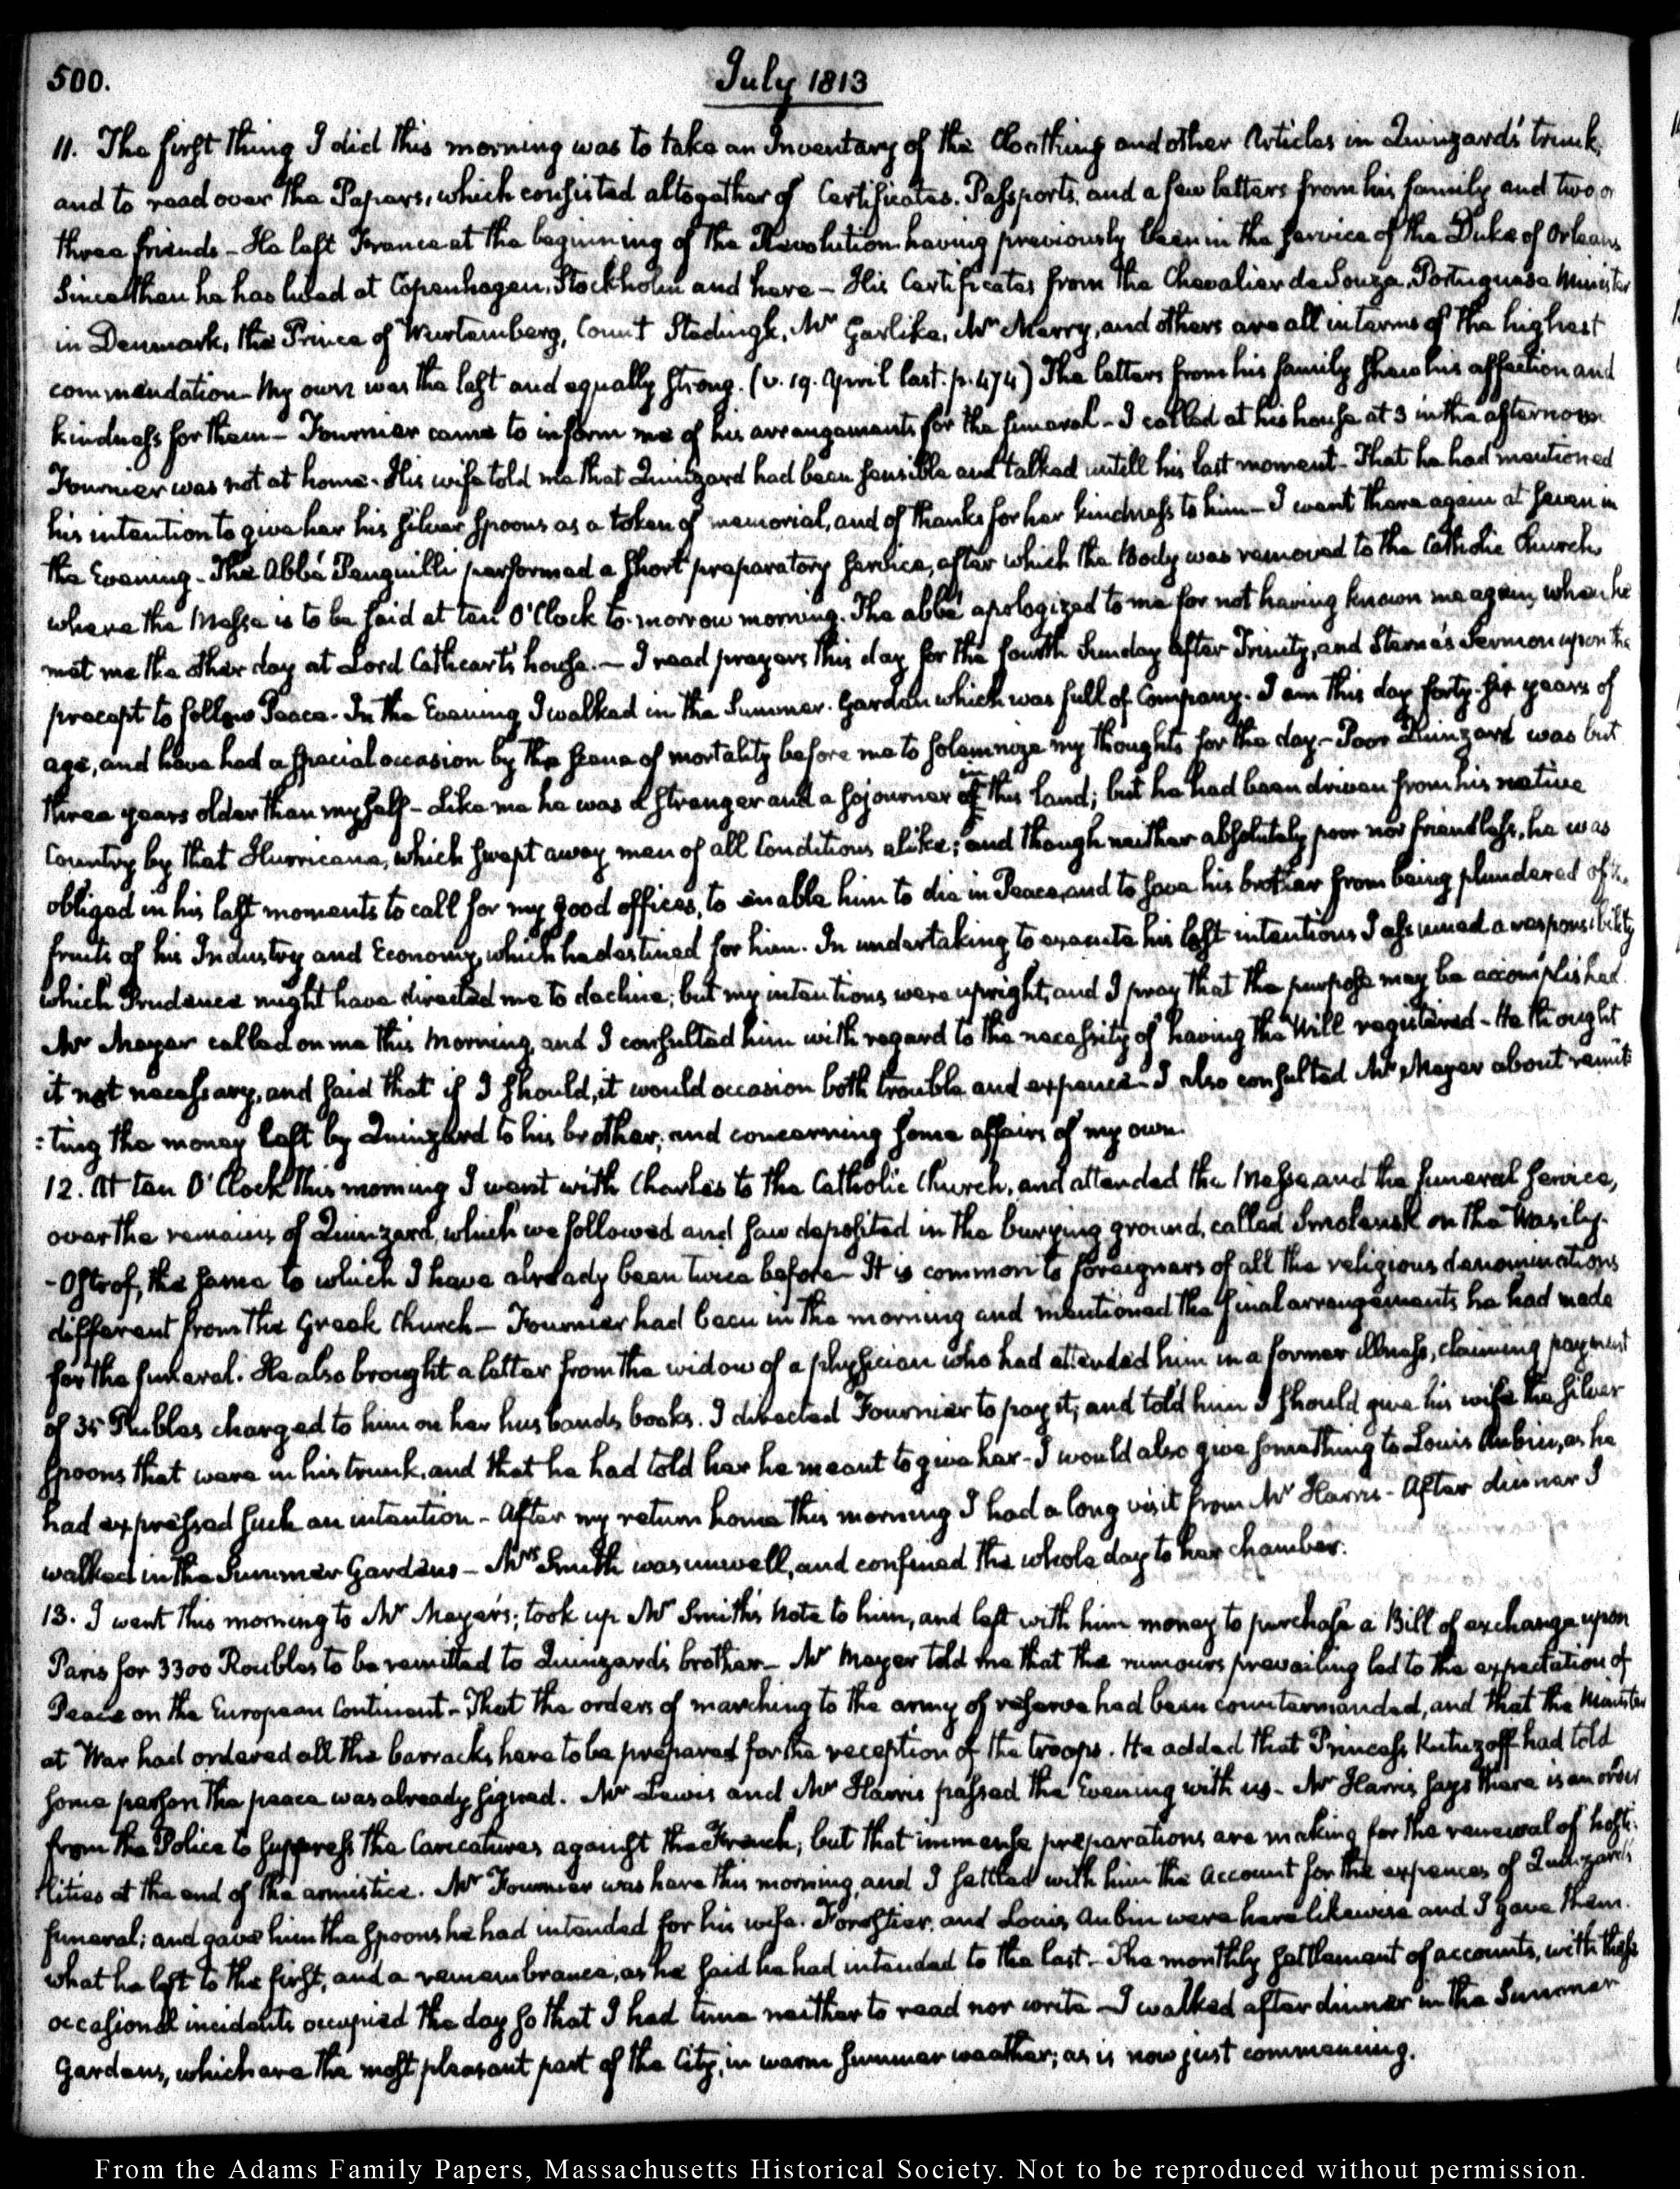 500.
July 1813
11. The first thing I did this morning was to take an Inventary of the Cloathing and other Articles in Quinzard's trunk,
and to read over the Papers, which consisted altogether of Certificates. Passports, and a few letters from his family and two or
three friends – He left France at the beginning of the Revolution having previously been in the service of the Duke of Orleans
Since then he has lived at Copenhagen, Stockholm and here – His Certificates from the Chevalier de Souza, Portuguese Minister
in Denmark, the Prince of Wurtemberg, Count Stedingk, Mr Garlike, Mr Merry, and others are all in terms of the highest
commendation – My own was the last and equally strong. (v. 19. April last. p. 474) The letters from his family shew his affection and
kindness for them – Fournier came to inform me of his arrangements for the funeral – I called at his house at 3 in the afternoon
Fournier was not at home – His wife told me that Quinzard had been sensible and talked untill his last moment – That he had mentioned
his intention to give her his silver spoons as a token of memorial, and of thanks for her kindness to him – I went there again at seven in
the Evening – The Abbé Penguilli performed a short preparatory service, after which the Body was removed to the Catholic Church,
where the Messe is to be said at ten O'Clock to-morrow morning. The abbé apologized to me for not having known me again, when he
met me the other day at Lord Cathcart's house. – I read prayers this day for the fourth Sunday after Trinity, and Sterne's Sermon upon the
precept to follow Peace. In the Evening I walked in the Summer. Garden which was full of Company. I am this day forty-six years of
age, and have had a special occasion by the scene of mortality before me to solemnize my thoughts for the day – Poor Quinzard was but
three years older than myself – Like me he was a stranger and a sojourner in this land; but he had been driven from his native
Country by that Hurricane, which swept away men of all Conditions alike; and though neither absolutely poor nor friendless, he was
obliged in his last moments to call for my good offices, to enable him to die in Peace, and to save his brother from being plundered of the
fruits of his Industry and Economy, which he destined for him. In undertaking to execute his last intentions I assumed a responsibility
which Prudence might have directed me to decline; but my intentions were upright, and I pray that the purpose may be accomplished.
Mr Meyer called on me this Morning, and I consulted him with regard to the necessity of having the Will registered – He thought
it not necessary, and said that if I should, it would occasion both trouble and expence – I also consulted Mr Meyer about remit
:ting the money left by Quinzard to his brother; and concerning some affairs of my own.
12. At ten O'Clock this morning I went with Charles to the Catholic Church, and attended the Messe, and the funeral service,
over the remains of Quinzard, which we followed and saw deposited in the burying ground, called Smolensk on the Wasily-
-Ostrof, the same to which I have already been twice before – It is common to foreigners of all the religious denominations
different from the Greek Church – Fournier had been in the morning and mentioned the final arrangements he had made
for the funeral. He also brought a letter from the widow of a physician who had attended him in a former illness, claiming payment
of 35 Rubles charged to him on her husbands books. I directed Fournier to pay it, and told him I should give his wife the silver
spoons that were in his trunk, and that he had told her he meant to give her – I would also give something to Louis Aubin, as he
had expressed such an intention – After my return home this morning I had a long visit from Mr Harris – After dinner I
walked in the Summer Gardens – Mrs Smith was unwell, and confined the whole day to her chamber.
13. I went this morning to Mr Meyer's; took up Mr Smith's Note to him, and left with him money to purchase a Bill of exchange upon
Paris for 3300 Roubles to be remitted to Quinzard's brother – Mr Meyer told me that the rumours prevailing led to the expectation of
Peace on the European Continent – That the orders of marching to the army of reserve had been countermanded, and that the Minister
at War had ordered all the barracks here to be prepared for the reception of the troops. He added that Princess Kutuzoff had told
some person the peace was already signed. Mr Lewis and Mr Harris passed the Evening with us – Mr Harris says there is an order
from the Police to suppress the Caricatures against the French; but that immense preparations are making for the renewal of hosti-
lities at the end of the armistice. Mr Fournier was here this morning, and I settled with him the Account for the expences of Quinzard's
funeral; and gave him the spoons he had intended for his wife. Forostier, and Louis Aubin were here likewise and I gave them
what he left to the first, and a remembrance, as he said he had intended to the last – The monthly settlement of accounts, with these
occasional incidents occupied the day so that I had time neither to read nor write – I walked after dinner in the Summer
Gardens, which are the most pleasant part of the City, in warm summer weather; as is now just commencing.
From the Adams Family Papers, Massachusetts Historical Society. Not to be reproduced without permission.